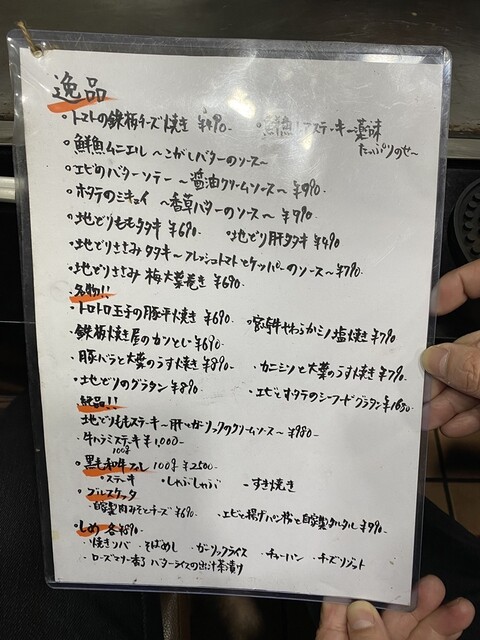 逸品
・トマトの鉄板チーズ焼き ¥490- ・鮮魚レアステーキ〜薬味たっぷりのせ〜
・鮮魚ムニエル 〜こがしバターのソース〜
・エビのバターソテー 〜醤油クリームソース〜 ¥990-
・ホタテのミキュイ 〜香草バターのソース〜 ¥990-
・地どりももタタキ ¥690- ・地どり肝タタキ ¥490
・地どりささみタタキ〜フレッシュトマトとケッパーのソース〜¥790-
・地どりささみ 梅大葉巻き ¥690-
名物!!
・トロトロ玉子の豚平焼き ¥690- ・宮崎牛やわらかミノ塩焼き ¥790
・鉄板焼き屋のガツとじ ¥690-
・豚バラと大葉のうす焼き ¥890- ・カニミソと大葉のうす焼き ¥790-
・地どりのグラタン ¥890 ・エビとホタテのシーフードグラタン ¥1080-
絶品!!
・地どりももステーキ〜肝とガーリックのクリームソース〜 ¥980-
・牛ハラミステーキ ¥1,000-
100g
・黒毛和牛フィレ 100g ¥2500-
・ステーキ ・しゃぶしゃぶ ・すき焼き
・ブルスケッタ
・自家製肉みそとチーズ ¥690- ・エビと揚げパン粉と自家製タルタル ¥990-
・しめ 各¥890-
・焼きソバ ・そばめし ・ガーリックライス ・チャーハン ・チーズリゾット
・ローズマリー香る バターライスの出汁茶漬け